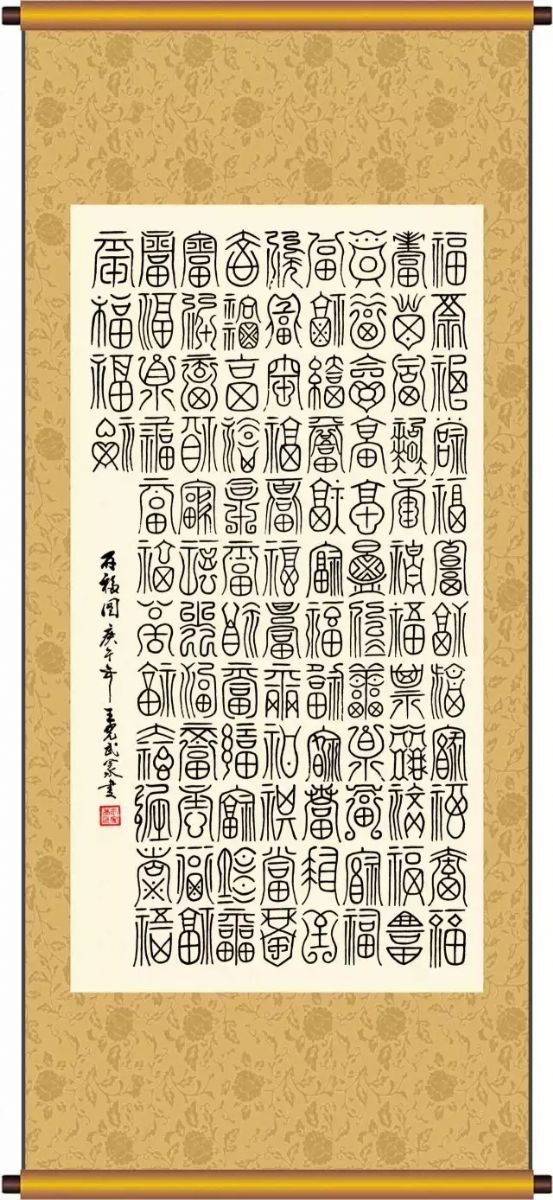 福福福福福福福福福福福福
福福福福福福福福福福福福
福福福福福福福福福福福福
福福福福福福福福福福福福
福福福福福福福福福福福福
福福福福福福福福福福福福
福福福福福福福福福福福福
福福福福福福福福福福福福
福福福福
百福图 庚午年 王武篆書